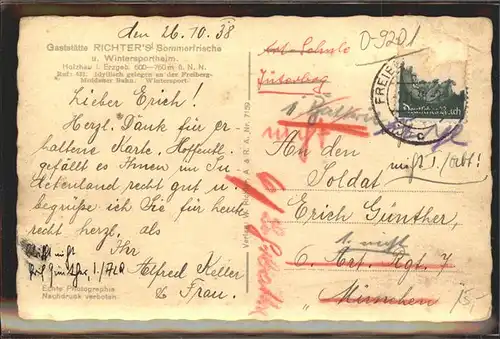 den 26.10.38
Gaststätte RICHTER'S Sommerfrische
u. Wintersportheim.
Holzhau i. Erzgeb. 600–760 m ü. N. N.
Ruf: 421. Idyllisch gelegen an der Freiberg-
Moldauer Bahn. Wintersport.
Lieber Erich!
Herzl. Dank für er-
haltene Karte. Hoffentl.
gefällt es Ihnen im Su-
detenland recht gut u.
begrüße ich Sie für heute
recht herzl, als
Ihr
Alfred Keller
& Frau.
nicht
Erich Günther, 1./
Echte Photographie
Nachdruck verboten.
Verlag
0-9201
Art. Schule
Jüterbog
1
nicht
FREIB
Deutsches Reich
nicht 1./
An den
Soldat
Erich Günther,
1. nicht
6. Art. Rgt. 7
München
15,-